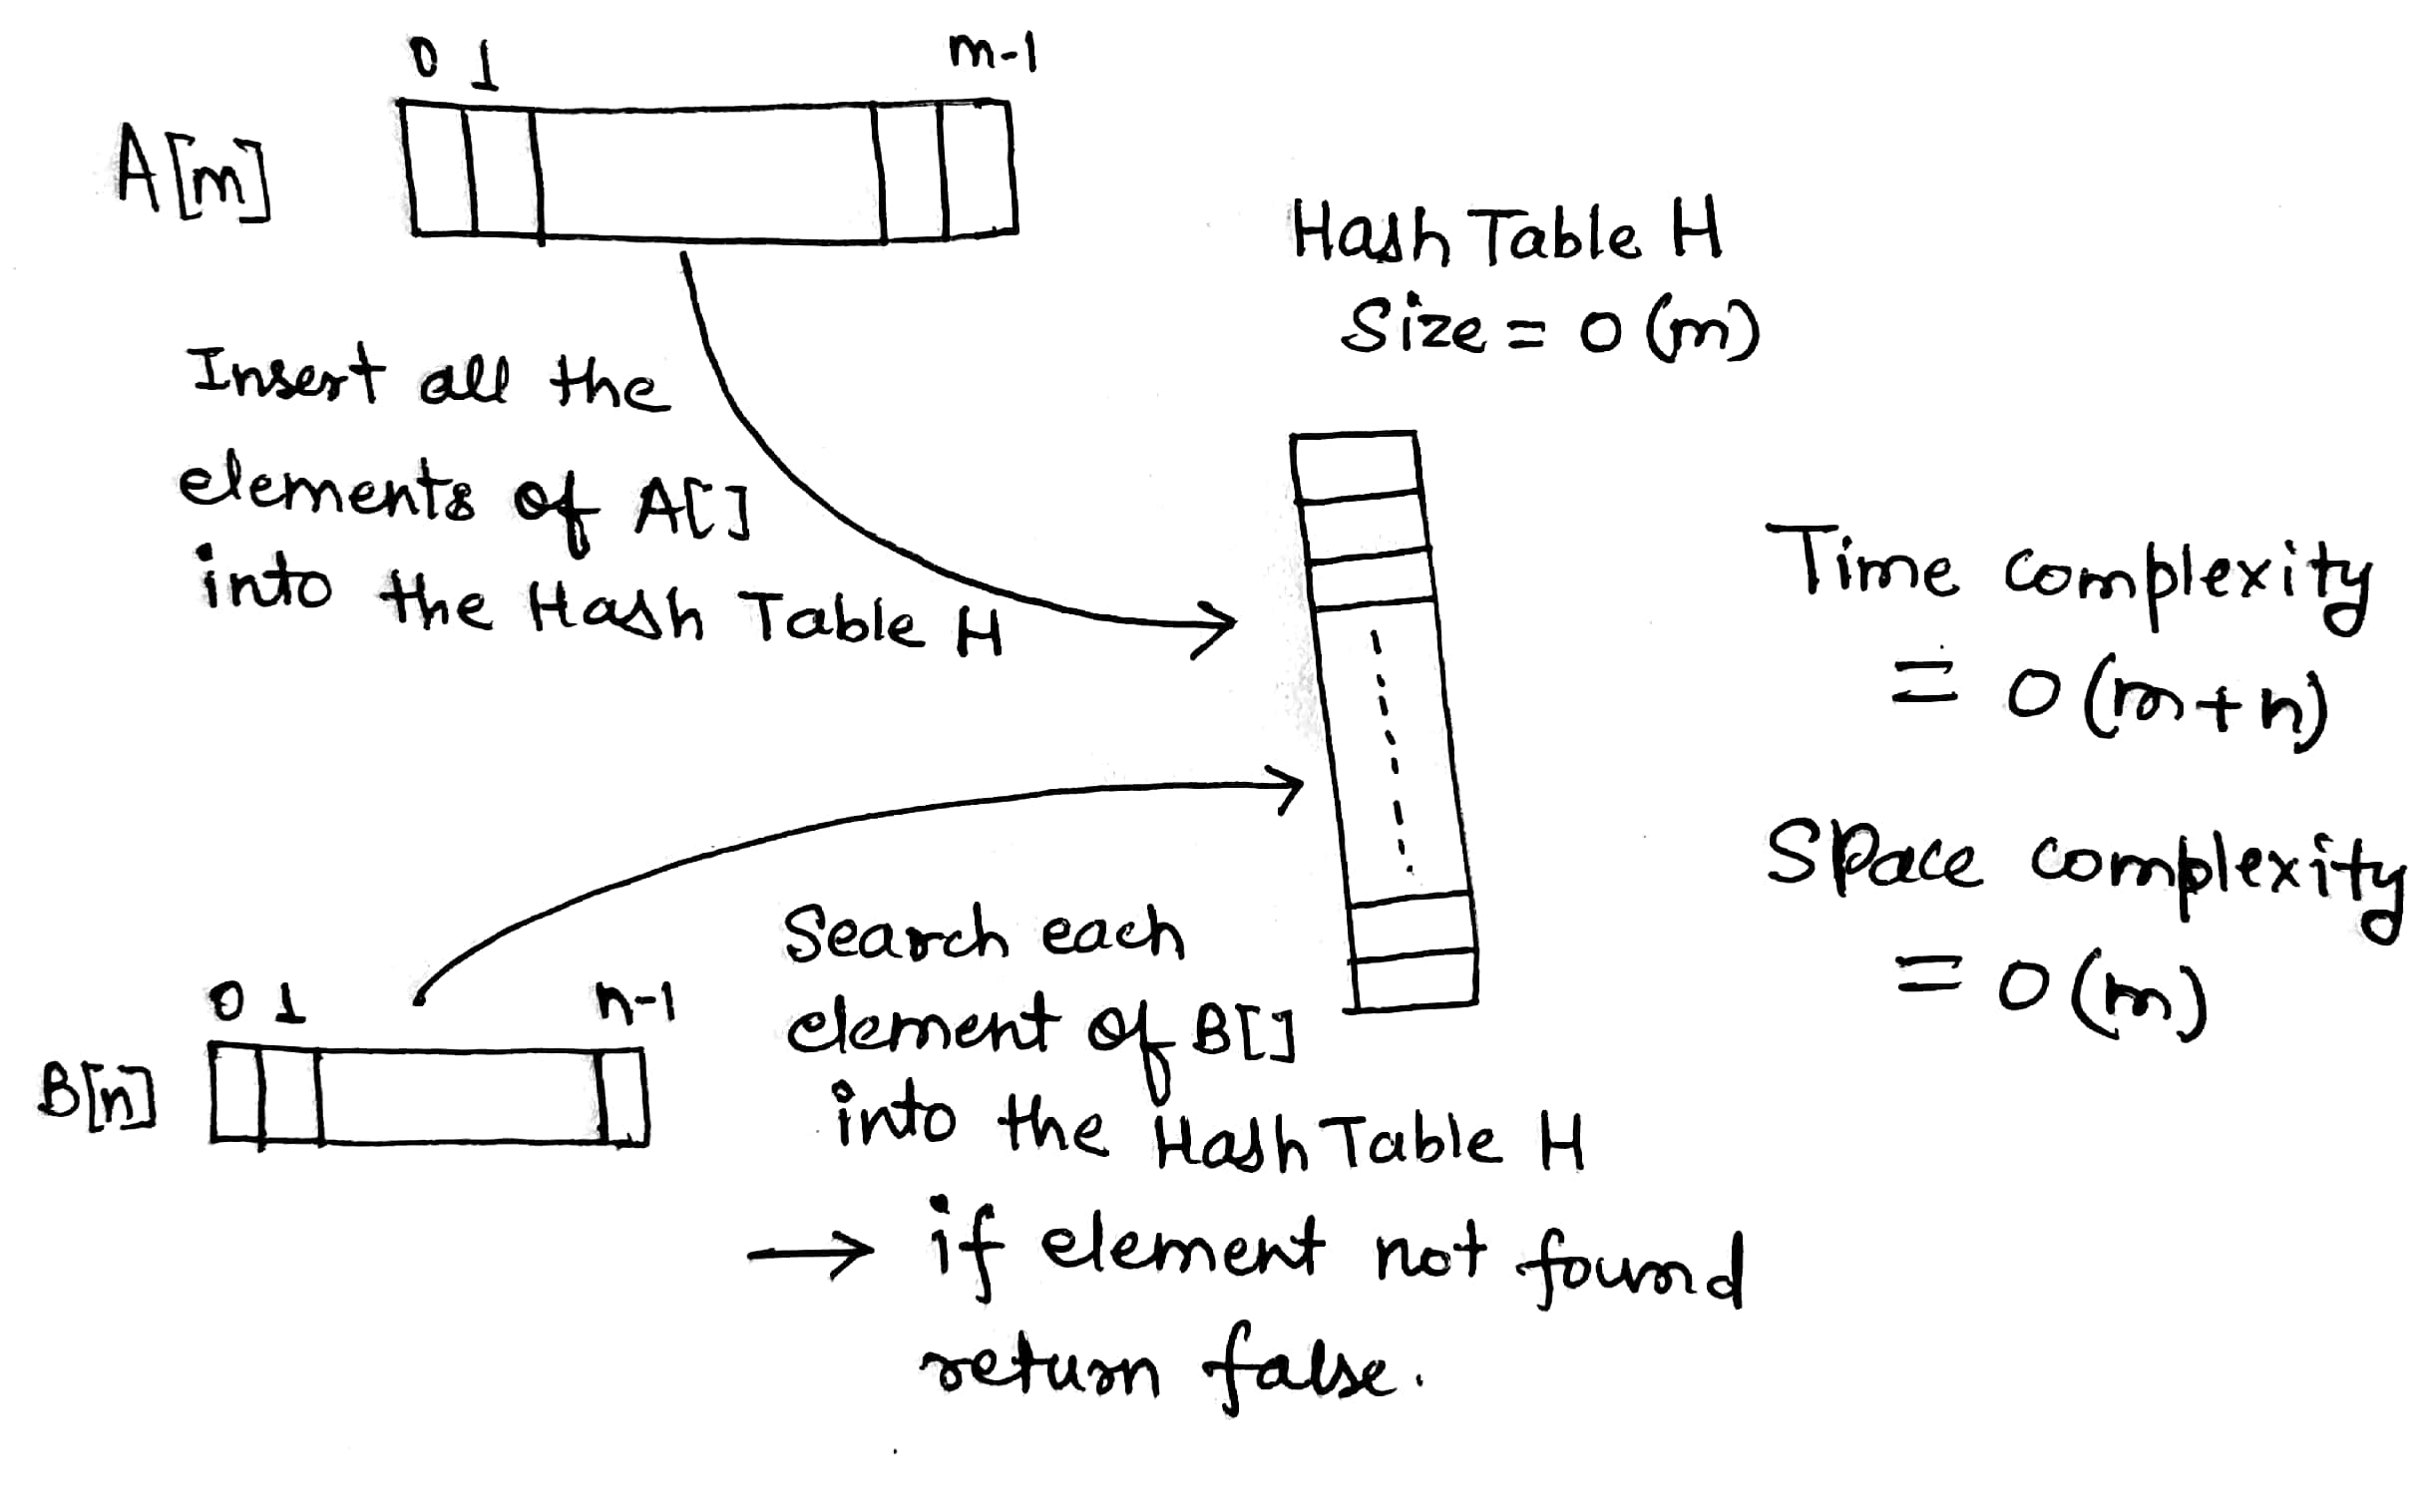 0 1 m-1
A[m]
Hash Table H
Size = O(m)
Insert all the
elements of A[]
into the Hash Table H
Time complexity
= O(m+n)
Space complexity
= O(m)
0 1 n-1
B[n]
Search each
element of B[]
into the Hash Table H
→ if element not found
return false.